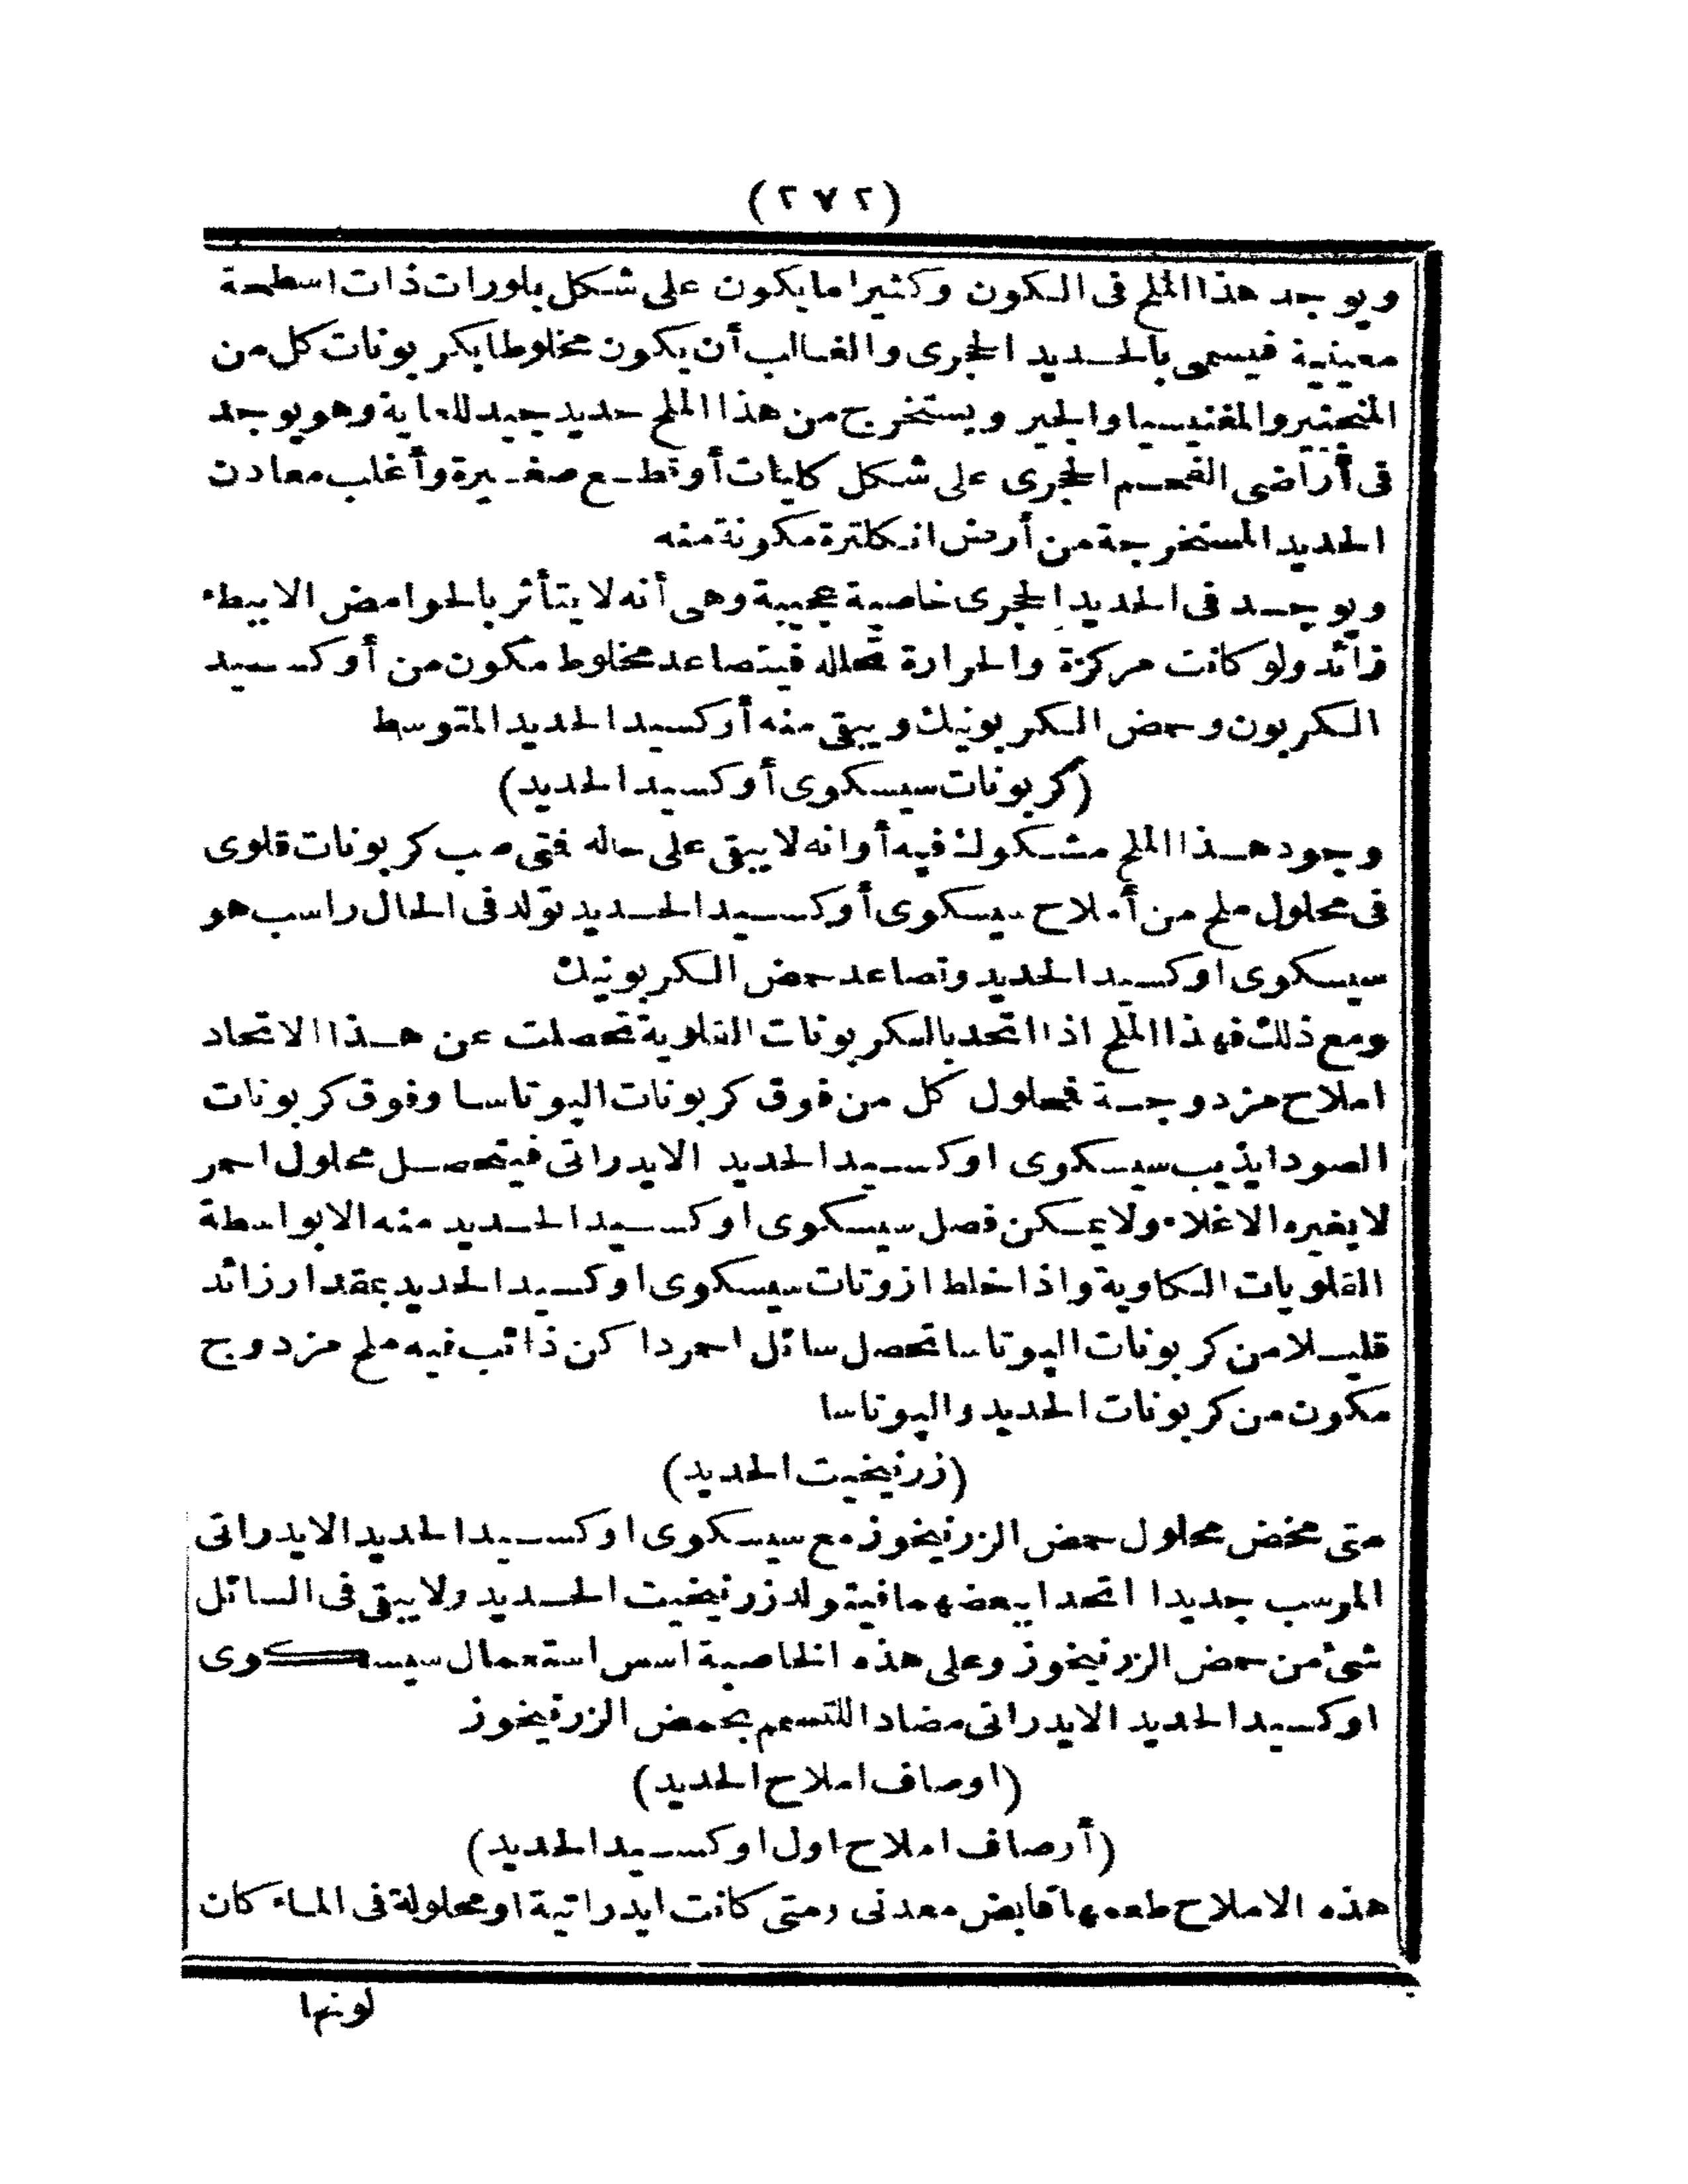 (٢٧٢)
ويوجد هذا الملح فى الكون وكثيرا ما يكون على شكل بلورات ذات اسطحة
معينية فيسمى بالحديد الحجرى والغالب أن يكون مخلوطا بكربونات كل من
المنجنيز والمغنيسيا والجير ويستخرج من هذا الملح حديد جيد للغاية وهو يوجد
فى أراضى الفحم الحجرى على شكل كليات أو قطع صغيرة وأغلب معادن
الحديد المستخرجة من أرض انكلترة مكونة منه
ويوجد فى الحديد الحجرى خاصية عجيبة وهى أنه لا يتأثر بالحوامض الا ببطء
زائد ولو كانت مركزة والحرارة تحلله فيتصاعد مخلوط مكون من أوكسيد
الكربون وحمض الكربونيك ويبقى منه أوكسيد الحديد المتوسط
(كربونات سيسكوى أوكسيد الحديد)
وجود هذا الملح مشكوك فيه أو انه لا يبقى على حاله فمتى صب كربونات قلوى
فى محلول ملح من أملاح سيسكوى أوكسيد الحديد تولد فى الحال راسب هو
سيسكوى اوكسيد الحديد وتصاعد حمض الكربونيك
ومع ذلك فهذا الملح اذا اتحد بالكربونات القلوية تحصلت عن هذا الاتحاد
املاح مزدوجة فمحلول كل من فوق كربونات البوتاسا وفوق كربونات
الصودا يذيب سيسكوى اوكسيد الحديد الايدراتى فيتحصل محلول احمر
لا يغيره الاغلاء ولا يمكن فصل سيسكوى اوكسيد الحديد منه الا بواسطة
القلويات الكاوية واذا خلط ازوتات سيسكوى اوكسيد الحديد بمقدار زائد
قليلا من كربونات البوتاسا تحصل سائل احمر داكن ذائب فيه ملح مزدوج
مكون من كربونات الحديد والبوتاسا
(زرنيخيت الحديد)
متى مخض محلول حمض الزرنيخوز مع سيسكوى اوكسيد الحديد الايدراتى
المرسب جديدا اتحدا ببعضهما فيتولد زرنيخيت الحديد ولا يبقى فى السائل
شئ من حمض الزرنيخوز وعلى هذه الخاصية اسس استعمال سيسكوى
اوكسيد الحديد الايدراتى مضادا للتسمم بحمض الزرنيخوز
(اوصاف املاح الحديد)
(أوصاف املاح اول اوكسيد الحديد)
هذه الاملاح طعمها قابض معدنى ومتى كانت ايدراتية او محلولة فى الماء كان
لونها